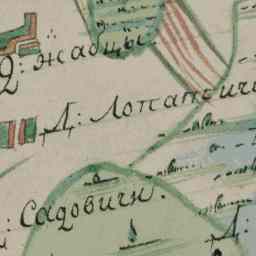 Д: жабцы.
Д: Лопатичи
: Садовичи.
Д: